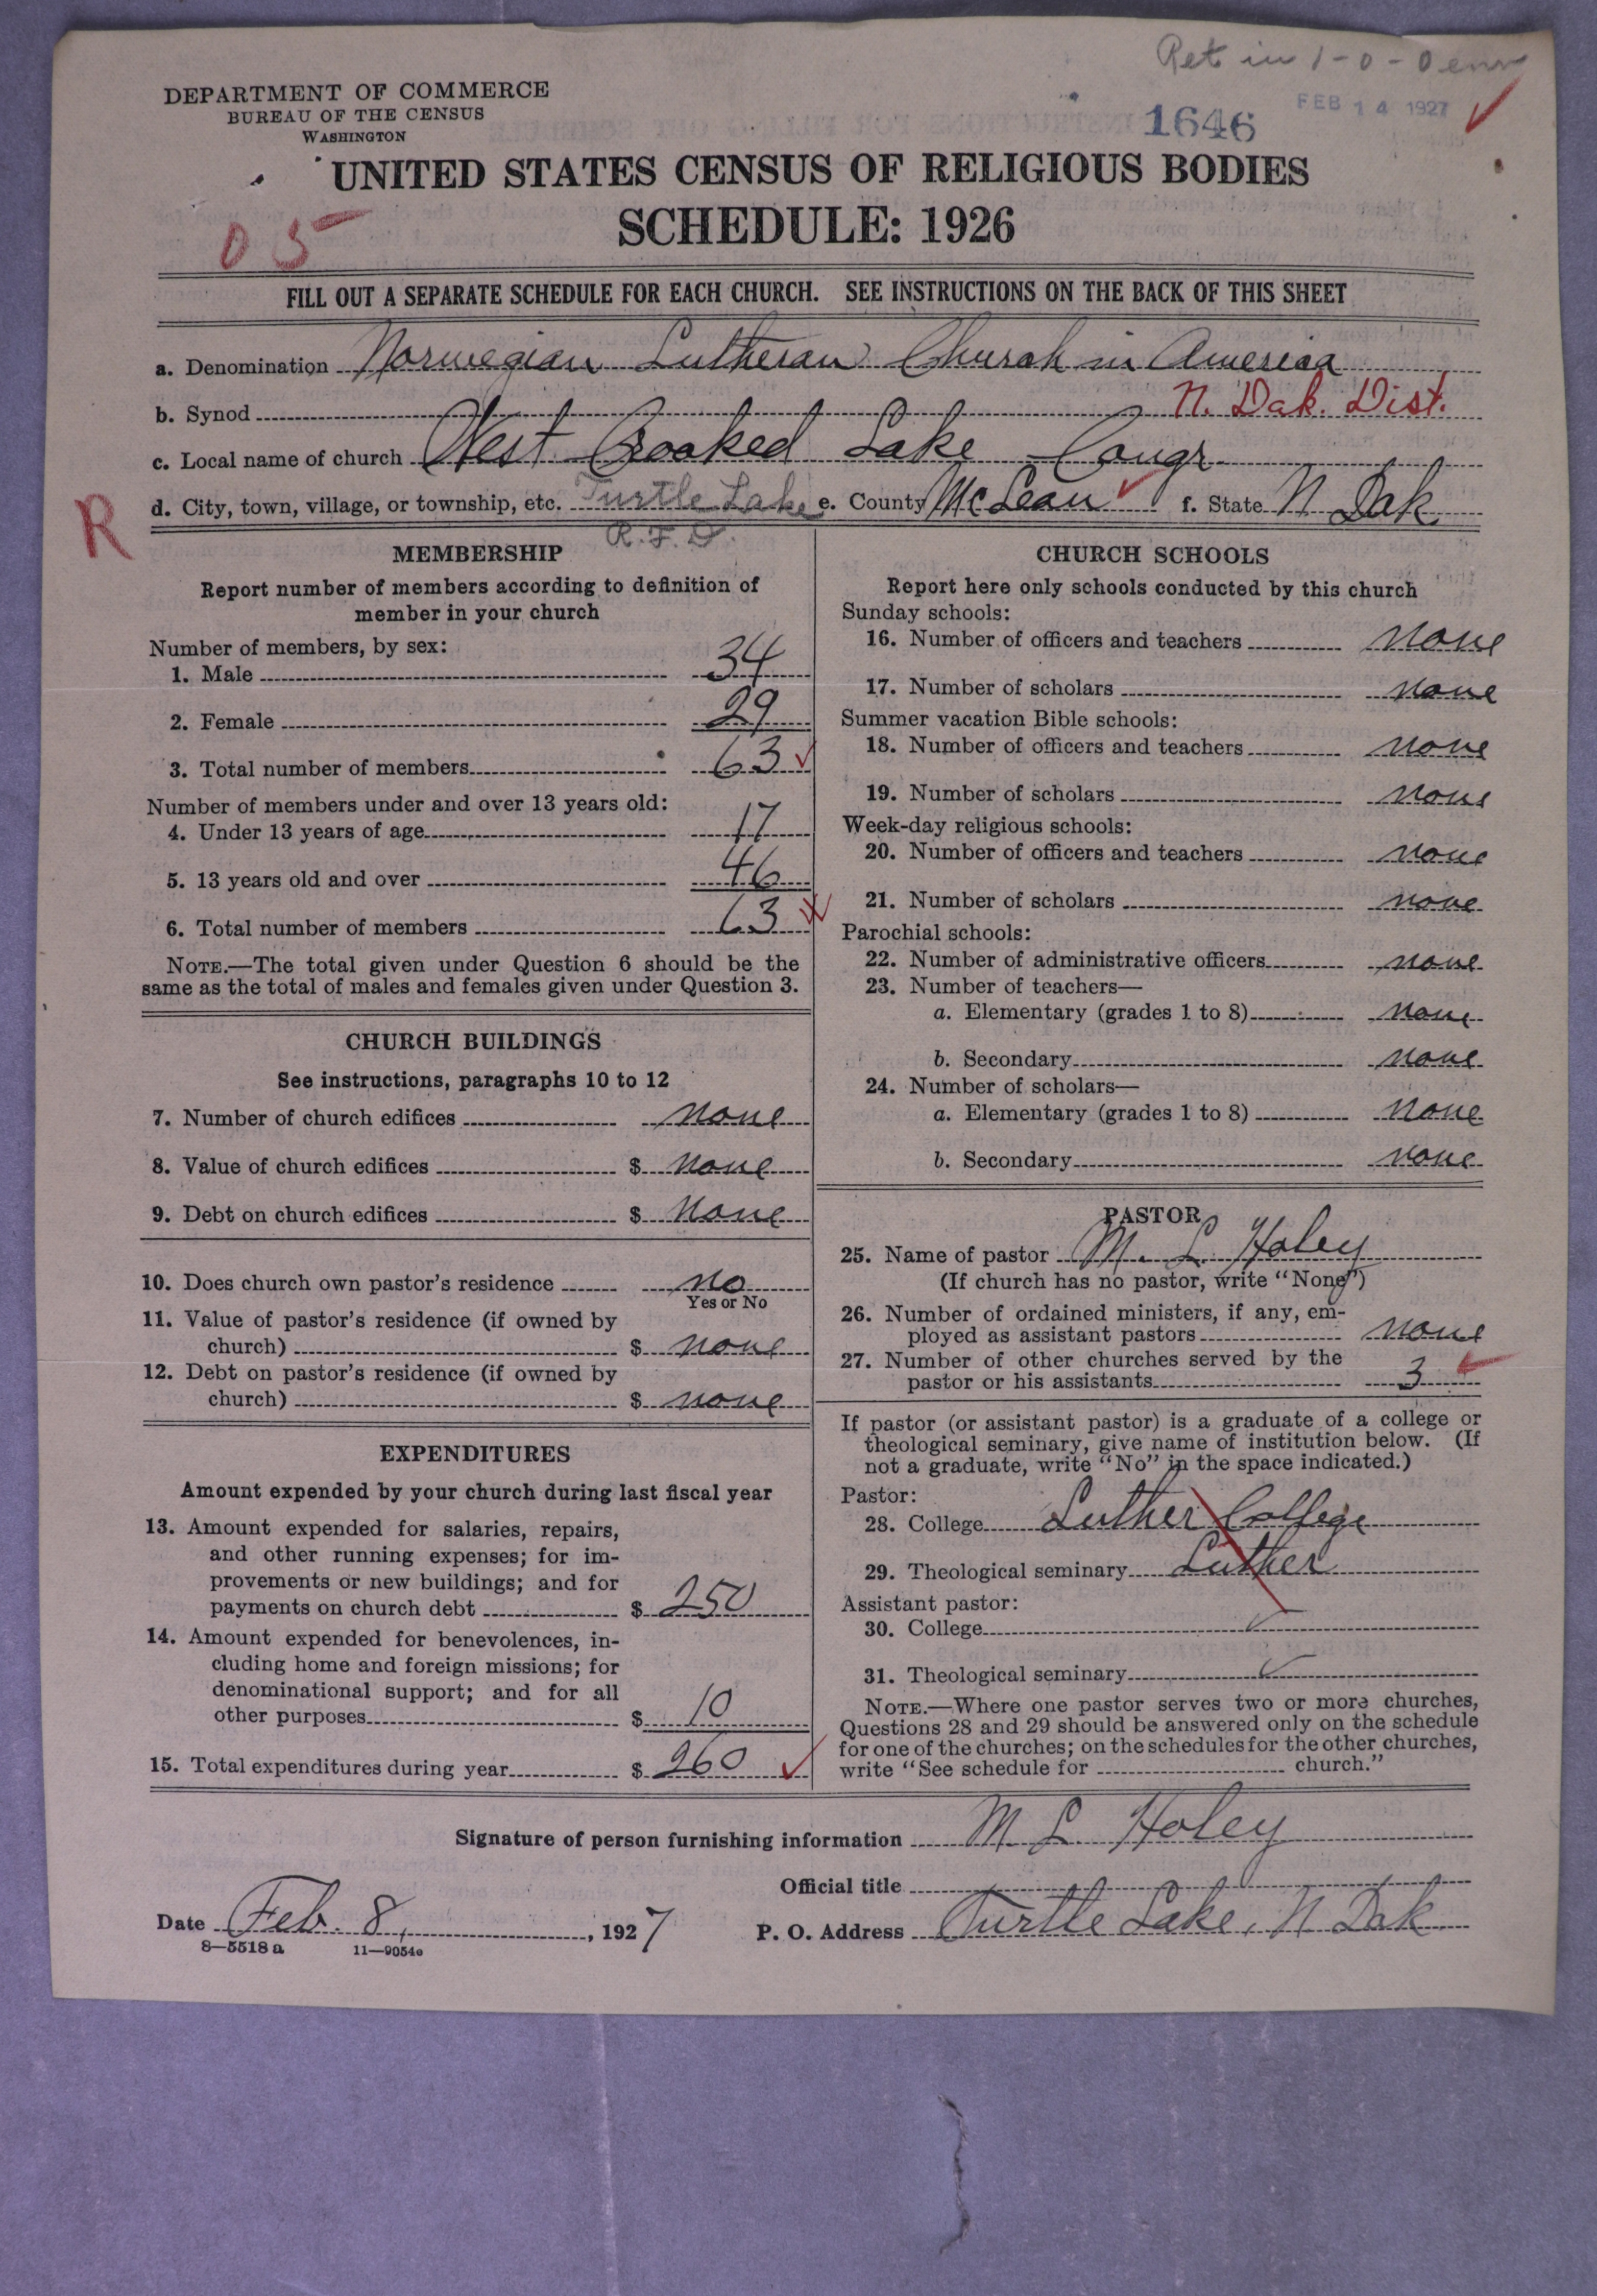 Ret in 1-0-0 env
DEPARTMENT OF COMMERCE
BUREAU OF THE CENSUS
WASHINGTON
1646
FEB 14 1927
UNITED STATES CENSUS OF RELIGIOUS BODIES
SCHEDULE: 1926
05
FILL OUT A SEPARATE SCHEDULE FOR EACH CHURCH. SEE INSTRUCTIONS ON THE BACK OF THIS SHEET
a. Denomination Norwegian Lutheran Church in America
b. Synod N. Dak. Dist.
c. Local name of church West Crooked Lake Congr
d. City, town, village, or township, etc. Turtle Lake e. County McLean f. State N Dak
R
R.F.D.
MEMBERSHIP
Report number of members according to definition of
member in your church
Number of members, by sex:
1. Male 34
2. Female 29
3. Total number of members 63
Number of members under and over 13 years old:
4. Under 13 years of age 17
5. 13 years old and over 46
6. Total number of members 63
NOTE.—The total given under Question 6 should be the
same as the total of males and females given under Question 3.
CHURCH BUILDINGS
See instructions, paragraphs 10 to 12
7. Number of church edifices none
8. Value of church edifices $ none
9. Debt on church edifices $ none
10. Does church own pastor's residence no
Yes or No
11. Value of pastor's residence (if owned by
church) $ none
12. Debt on pastor's residence (if owned by
church) $ none
EXPENDITURES
Amount expended by your church during last fiscal year
13. Amount expended for salaries, repairs,
and other running expenses; for im-
provements or new buildings; and for
payments on church debt $ 250
14. Amount expended for benevolences, in-
cluding home and foreign missions; for
denominational support; and for all
other purposes $ 10
15. Total expenditures during year $ 260
CHURCH SCHOOLS
Report here only schools conducted by this church
Sunday schools:
16. Number of officers and teachers none
17. Number of scholars none
Summer vacation Bible schools:
18. Number of officers and teachers none
19. Number of scholars none
Week-day religious schools:
20. Number of officers and teachers none
21. Number of scholars none
Parochial schools:
22. Number of administrative officers none
23. Number of teachers—
a. Elementary (grades 1 to 8) none
b. Secondary none
24. Number of scholars—
a. Elementary (grades 1 to 8) none
b. Secondary none
PASTOR
25. Name of pastor M. L. Holey
(If church has no pastor, write "None")
26. Number of ordained ministers, if any, em-
ployed as assistant pastors none
27. Number of other churches served by the
pastor or his assistants 3
If pastor (or assistant pastor) is a graduate of a college or
theological seminary, give name of institution below. (If
not a graduate, write "No" in the space indicated.)
Pastor:
28. College Luther College
29. Theological seminary Luther
Assistant pastor:
30. College
31. Theological seminary
NOTE.—Where one pastor serves two or more churches,
Questions 28 and 29 should be answered only on the schedule
for one of the churches; on the schedules for the other churches,
write "See schedule for church."
Signature of person furnishing information M. L. Holey
Official title
Date Feb. 8, 1927 P. O. Address Turtle Lake, N Dak
8—5518 a 11—9054e